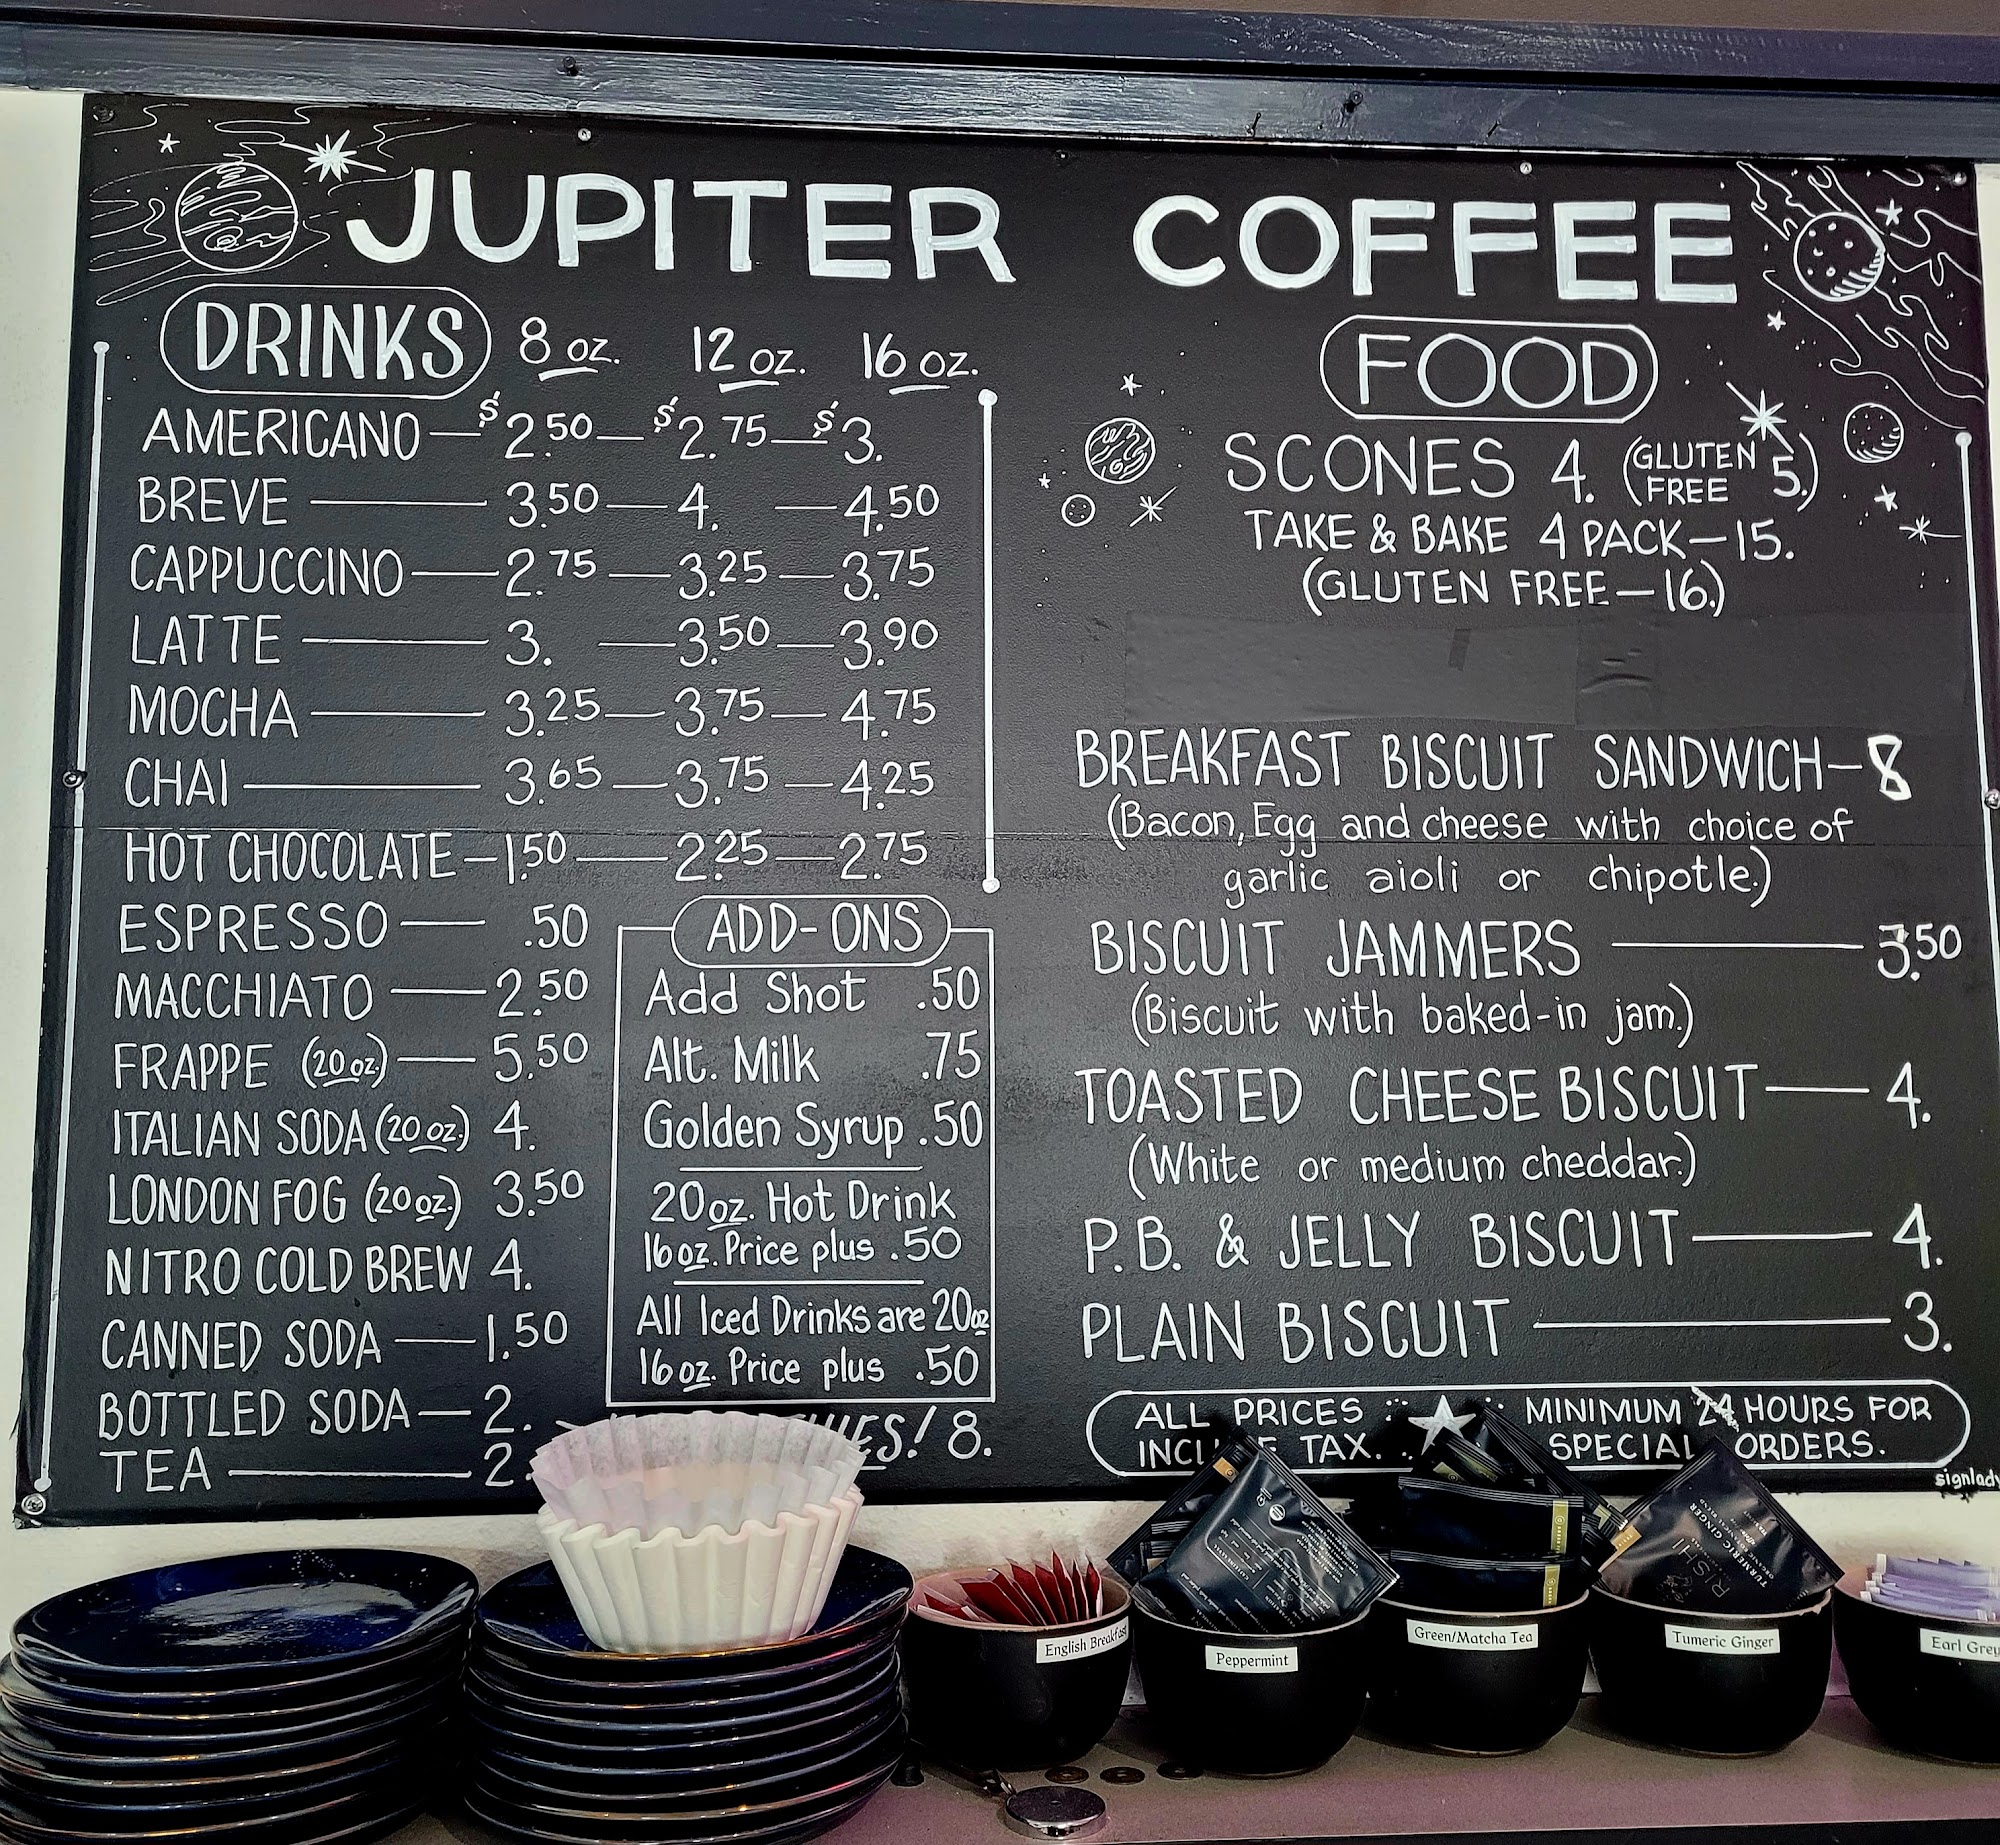 JUPITER COFFEE
DRINKS 8 oz. 12 oz. 16 oz.
AMERICANO — $2.50 — $2.75 — $3.
BREVE — 3.50 — 4. — 4.50
CAPPUCCINO — 2.75 — 3.25 — 3.75
LATTE — 3. — 3.50 — 3.90
MOCHA — 3.25 — 3.75 — 4.75
CHAI — 3.65 — 3.75 — 4.25
HOT CHOCOLATE — 1.50 — 2.25 — 2.75
ESPRESSO — .50
MACCHIATO — 2.50
FRAPPE (20 oz.) — 5.50
ITALIAN SODA (20 oz.) 4.
LONDON FOG (20 oz.) 3.50
NITRO COLD BREW 4.
CANNED SODA — 1.50
BOTTLED SODA — 2.
TEA — 2.
ADD-ONS
Add Shot .50
Alt. Milk .75
Golden Syrup .50
20 oz. Hot Drink
16 oz. Price plus .50
All Iced Drinks are 20 oz
16 oz. Price plus .50
8.
FOOD
SCONES 4. (GLUTEN FREE 5.)
TAKE & BAKE 4 PACK — 15.
(GLUTEN FREE — 16.)
BREAKFAST BISCUIT SANDWICH — 8
(Bacon, Egg and cheese with choice of
garlic aioli or chipotle.)
BISCUIT JAMMERS — 3.50
(Biscuit with baked-in jam.)
TOASTED CHEESE BISCUIT — 4.
(White or medium cheddar.)
P.B. & JELLY BISCUIT — 4.
PLAIN BISCUIT — 3.
ALL PRICES
INCLUDE TAX.
MINIMUM 24 HOURS FOR
SPECIAL ORDERS.
signlady
English Breakfast
Peppermint
Green/Matcha Tea
Tumeric Ginger
Earl Grey
RISHI
TURMERIC GINGER